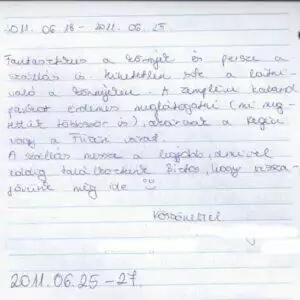 2011. 06. 18 - 2011. 06. 25.
Fantasztikus a környék és persze a
szállás is. Hihetetlen sok a látni-
való a környéken. A zempléni kaland
parkot érdemes meglátogatni (mi meg-
tettük többször is), akárcsak a Regéci
vagy a Füzéri várat.
A szállás messze a legjobb, amivel
eddig találkoztunk. Biztos, hogy vissza-
jövünk még ide
Köszönettel
2011.06.25-27.